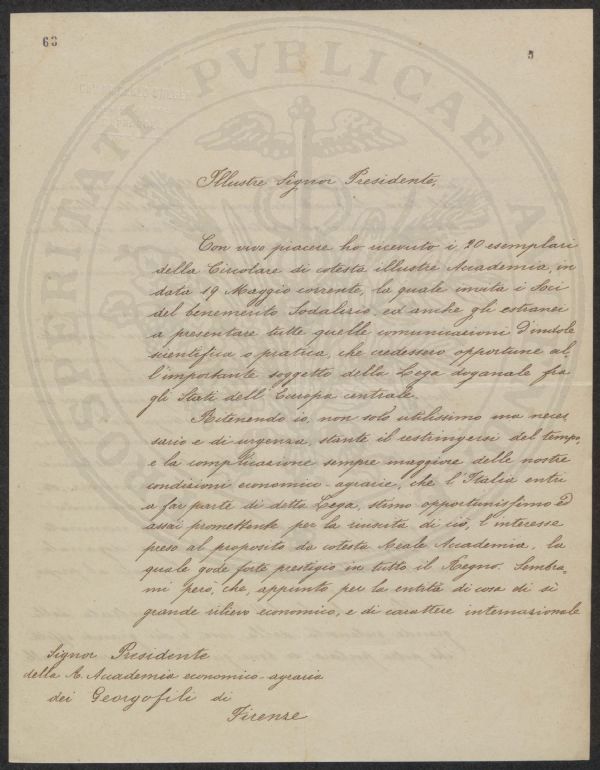 63
5
PROSPERITATI PVBLICAE
Illustre Signor Presidente,
Con vivo piacere ho ricevuto i 20 esemplari
della Circolare di cotesta illustre Accademia, in
data 19 Maggio corrente, la quale invita i Soci
del benemerito Sodalizio, ed anche gli estranei
a presentare tutte quelle comunicazioni d'indole
scientifica o pratica, che credessero opportune al-
l'importante soggetto della Lega doganale fra
gli Stati dell'Europa centrale.
Ritenendo io, non solo utilissimo ma neces
sario e di urgenza, stante il restringersi del tempo,
e la complicazione sempre maggiore delle nostre
condizioni economico-agrarie, che l'Italia entri
a far parte di detta Lega, stimo opportunissimo ed
assai promettente per la riuscita di ciò, l'interesse
preso al proposito da cotesta Reale Accademia, la
quale gode forte prestigio in tutto il Regno. Sembra-
mi però, che, appunto per la entità di cosa di sì
grande rilievo economico, e di carattere internazionale
Signor Presidente
della R. Accademia economico-agraria
dei Georgofili di
Firenze